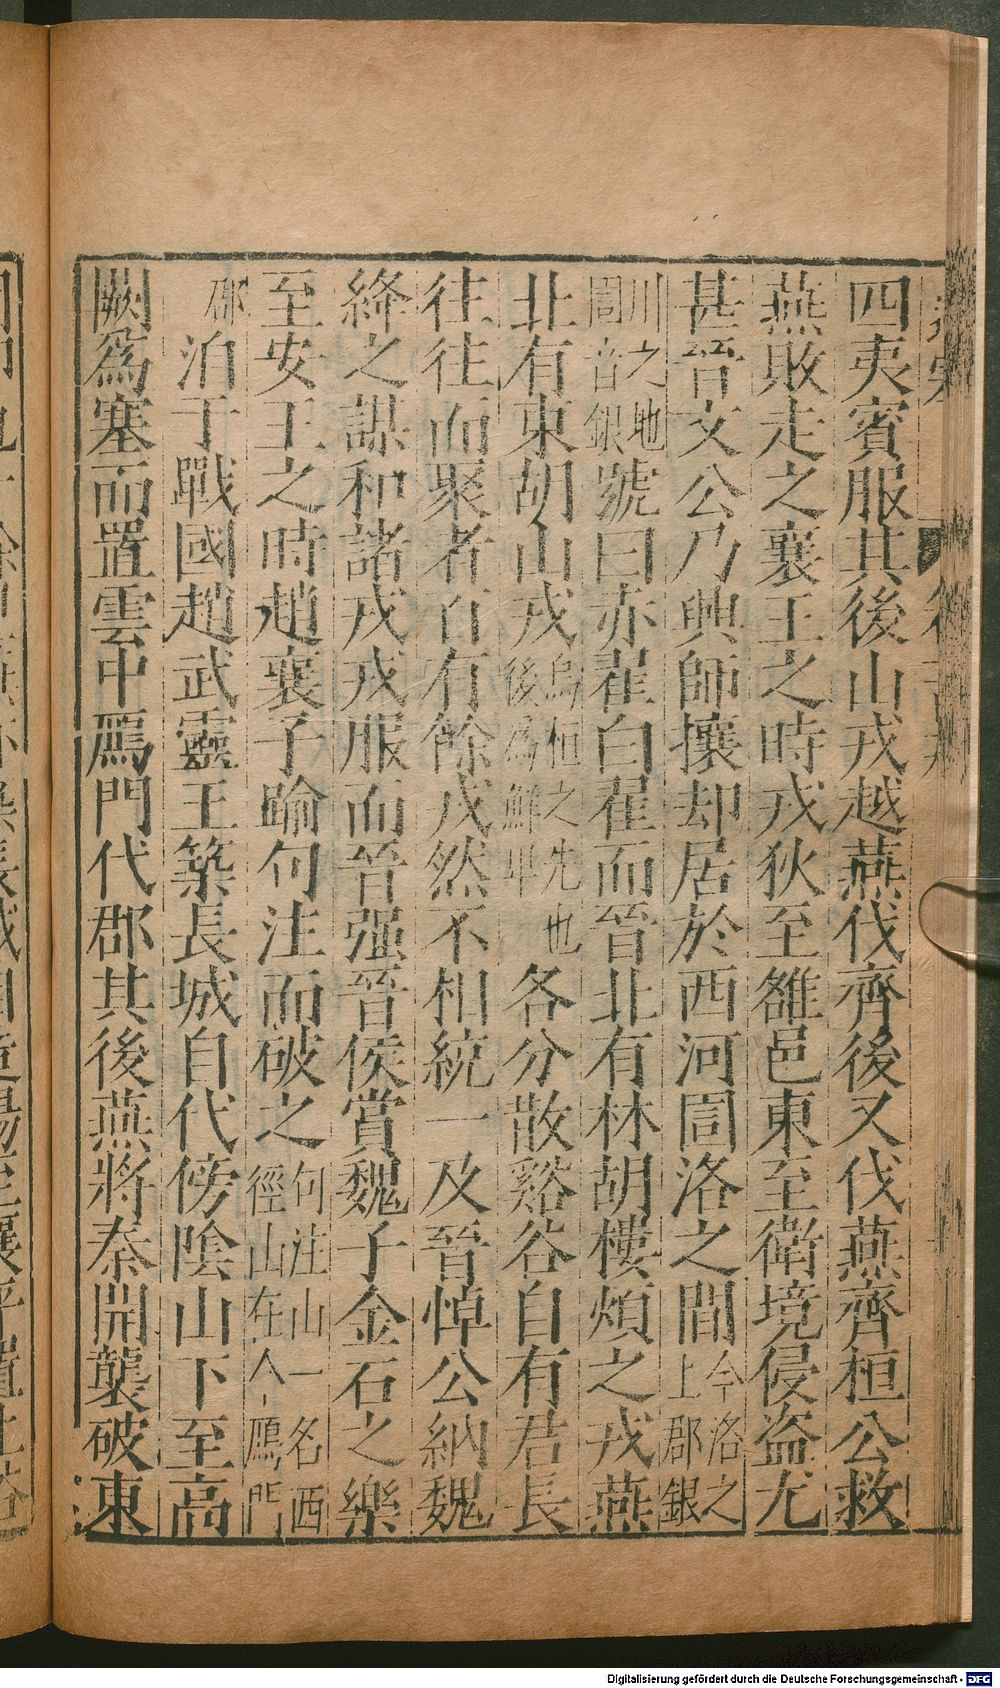 四夷賓服其後山戎越燕伐齊後又伐燕齊桓公救
燕敗走之襄王之時戎狄至雒邑東至衛境侵盗尤
甚晉文公乃興師攘却居於西河圁洛之間今洛之上郡銀
川之地圁音銀號曰赤翟白翟而晉北有林胡樓煩之戎燕
北有東胡山戎烏桓之先也後為鮮卑各分散谿谷自有君長
往往而聚者百有餘戎然不相統一及晉悼公納魏
絳之謀和諸戎戎服而晉强晉侯賞魏子金石之樂
至安王之時趙襄子踰句注而破之句注山一名西徑山在今鴈門
郡洎于戰國趙武靈王築長城自代傍陰山下至高
闕為塞而置雲中鴈門代郡其後燕將秦開襲破東
Digitalisierung gefördert durch die Deutsche Forschungsgemeinschaft - DFG